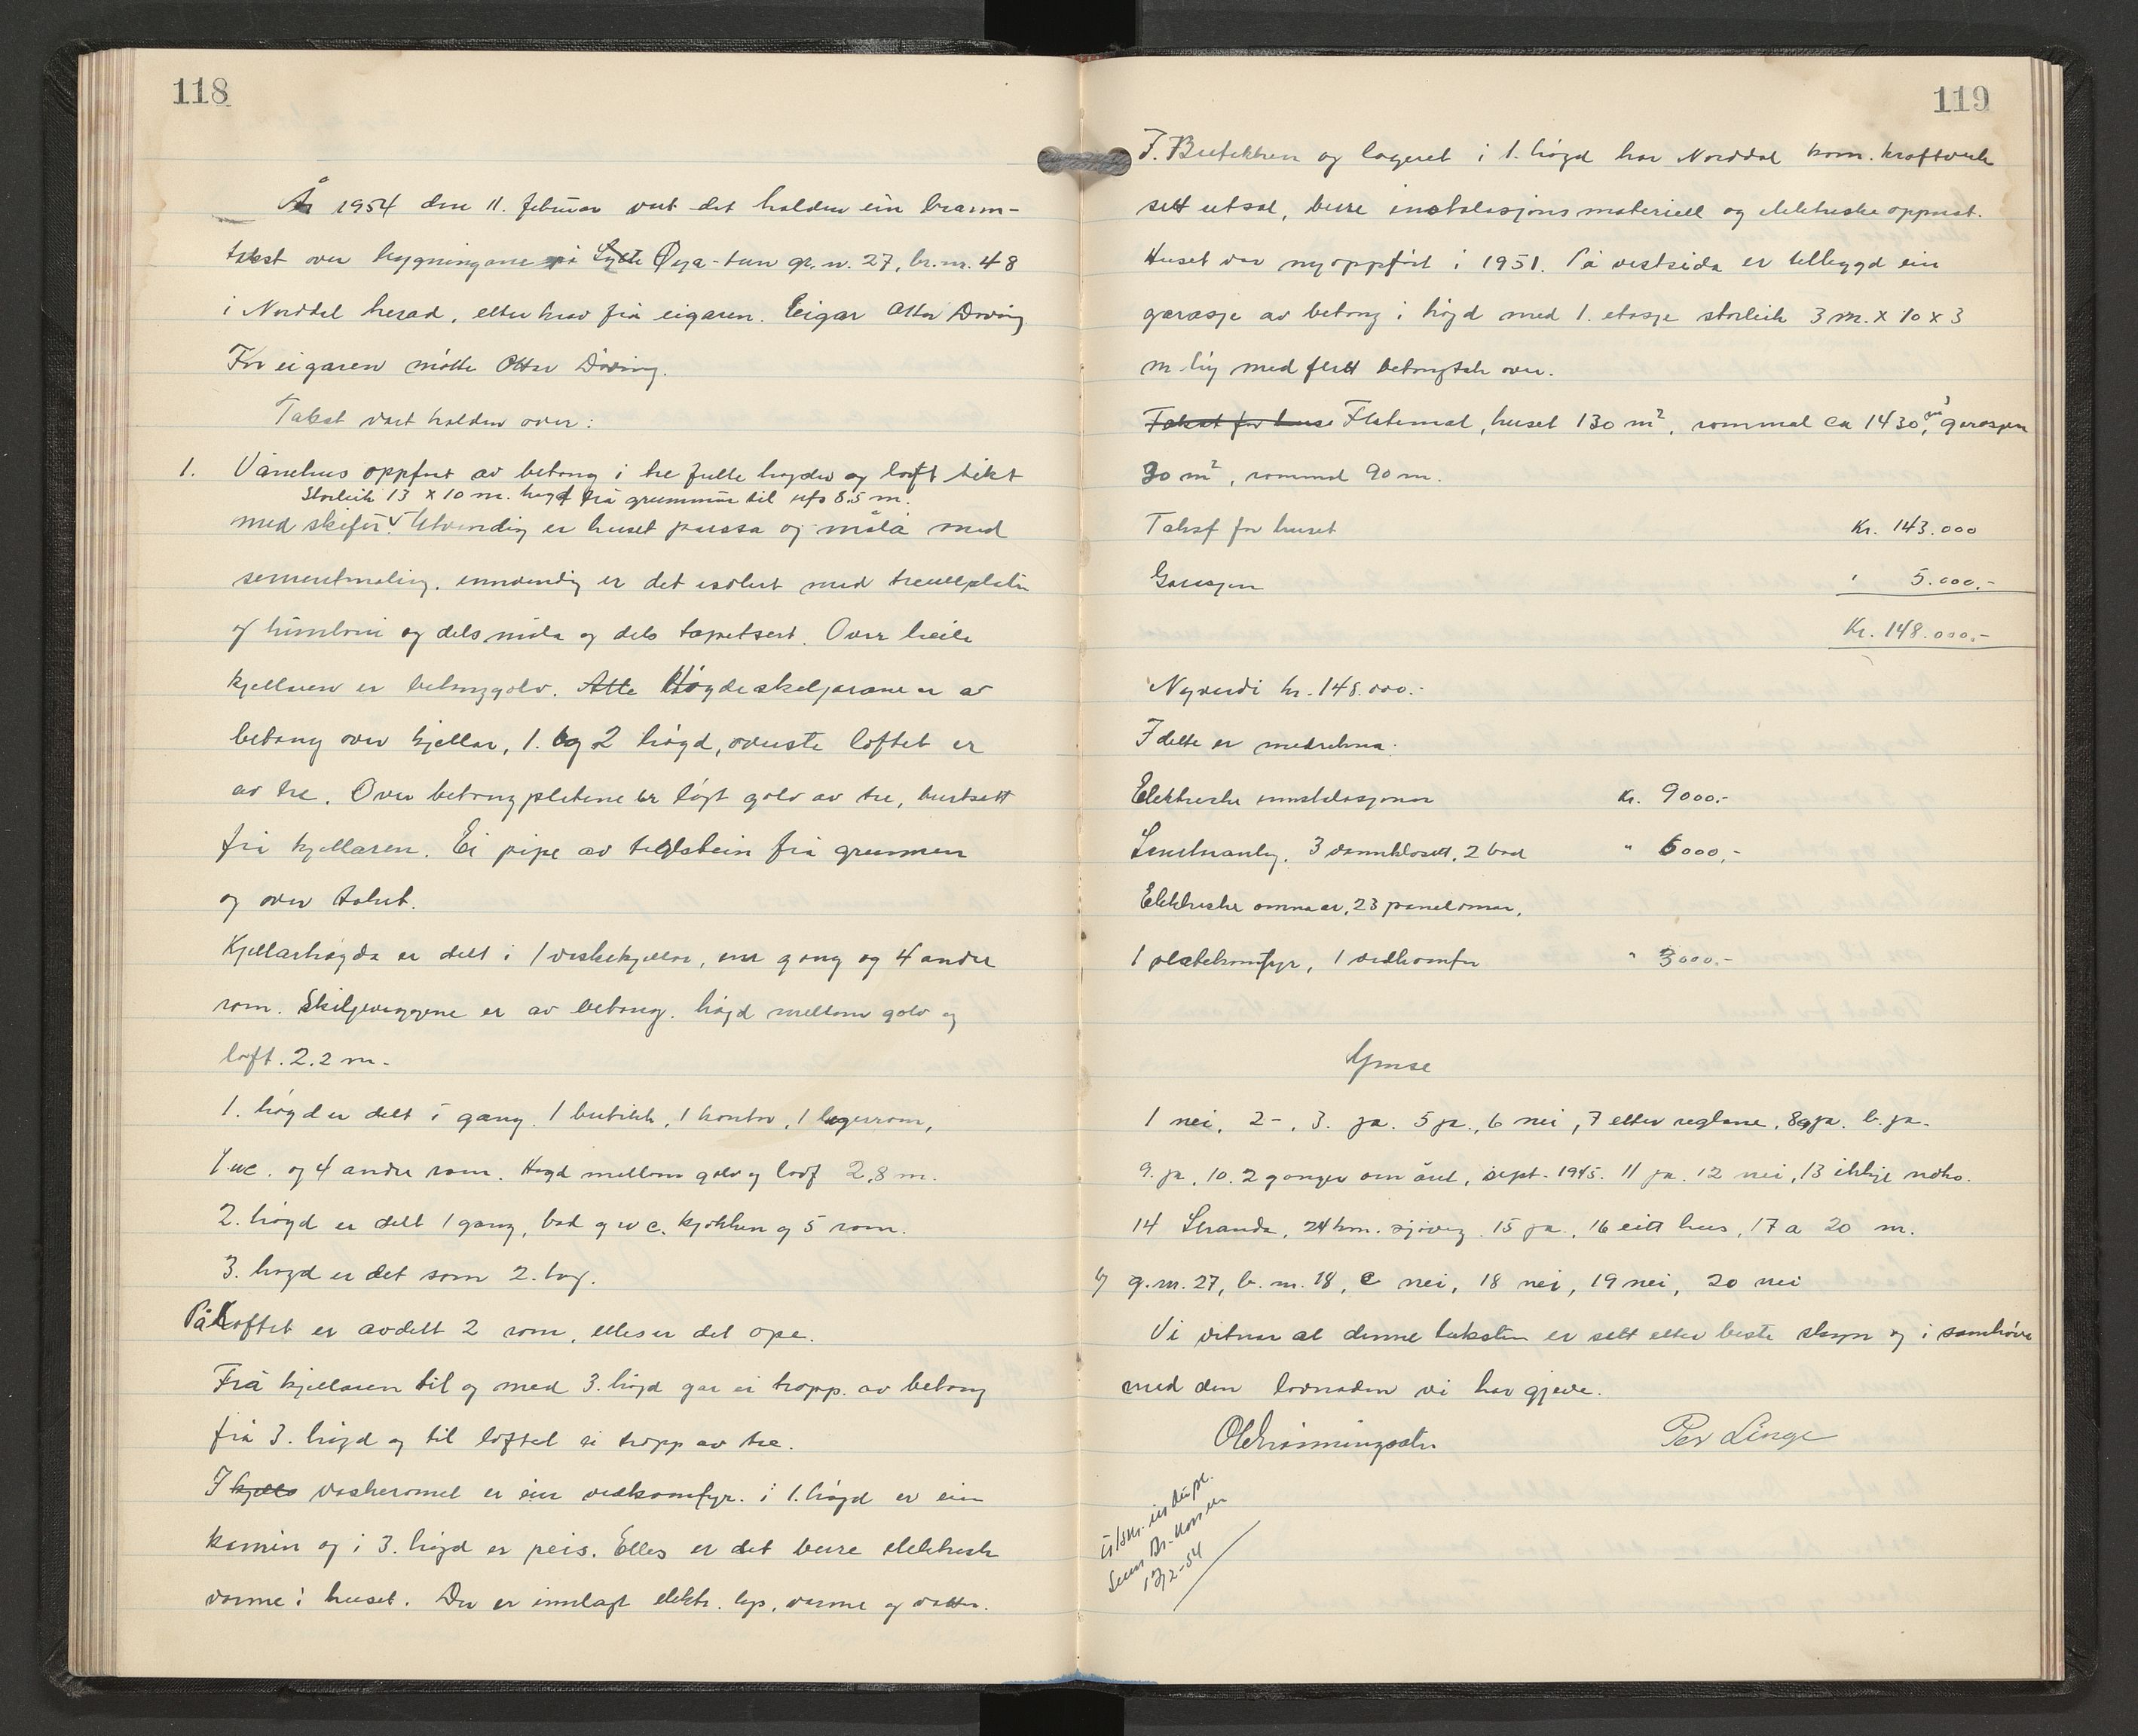 118
År 1954 den 11. februar vart det halden ein brann-
takst over bygningane på Øya-tun gr. n. 27, br. nr. 48
i Norddal herad, etter krav frå eigaren. Eigar Ottar Døving
For eigaren møtte Ottar Døving.
Takst vart halden over:
1. Vånehus oppført av betong i tre fulle høgder og loft tekt
Storleik 13 x 10 m. høgd frå grunnmur til ufs 8.5 m.
med skifer. Utvendig er huset pussa og måla med
sementmaling. innvendig er det isolert med treullplater
og dels måla og dels tapetsert. Over heile
kjellaren er betonggolv. Atte Høgdeskeljarane er av
betong over kjellar, 1. og 2 høgd, øverste loftet er
av tre. Over betongplatene er lagt golv av tre, burtsett
frå kjellaren. Ei pipe av teglstein frå grunnen
og over taket.
Kjellarhøgda er delt i 1 vaskekjellar, ein gang og 4 andre
rom. Skiljeveggene er av betong. høgd mellom golv og
loft. 2.2 m.
1. høgd er delt i gang. 1 butikk, 1 kontor, 1 lagerrom,
1 wc. og 4 andre rom. Høgd mellom golv og loft 2,8 m.
2. høgd er delt 1 gang, bad og wc. kjøkken og 5 rom.
3. høgd er det som 2. høg.
På Loftet er avdelt 2 rom, elles er det ope.
Frå kjellaren til og med 3. høgd gar ei tropp. av betong
frå 3. høgd og til loftet ei tropp av tre.
I kjella vaskeromet er ein vedkomfyr. i 1. høgd er ein
kamin og i 3. høgd er peis. Elles er det berre elektrisk
varme i huset. Der er innlagt elektr. lys, varme og vatn.
119
I. Butikken og lageret i 1. høgd har Norddal kom. kraftverk
sitt utsal, berre instalasjonsmateriell og elektriske apparat.
Huset var nyoppført i 1951. På vestsida er tilbygd ein
garasje av betong i høgd med 1. etasje storleik 3 m. x 10 x 3
m høg med flatt betongtak over.
Takst for huse Flatemal, huset 130 m², rommal ca 1430 m³, garasjen
30 m², rommal 90 m.
Takst for huset Kr. 143.000
Garasjen " 5.000.-
Kr. 148.000.-
Nyverdi kr. 148.000.-
I dette er medrekna.
Elektriske innstalasjonar Kr. 9000.-
3 vannklosett, 2 bad " 6000.-
Elektriske omnaer, 23 panelomnar,
1 platekomfyr, 1 vedkomfyr " 3000.-
Ymse
1 nei, 2-, 3. ja. 5 ja., 6 nei, 7 etter reglane, 8a ja. b. ja.
9. ja, 10. 2 ganger om året, sept. 1945. 11 ja. 12 nei, 13 ikkje
14 Stranda, 24 km. sjøveg. 15 ja., 16 eitt hus, 17 a 20 m.
b) g.nr. 27, b. nr. 18, c nei, 18 nei, 19 nei, 20 nei
Vi vitnar at denne taksten er sett etter beste skjøn og i samhøve
med den lovnaden vi har gjeve.
Per Linge
-54